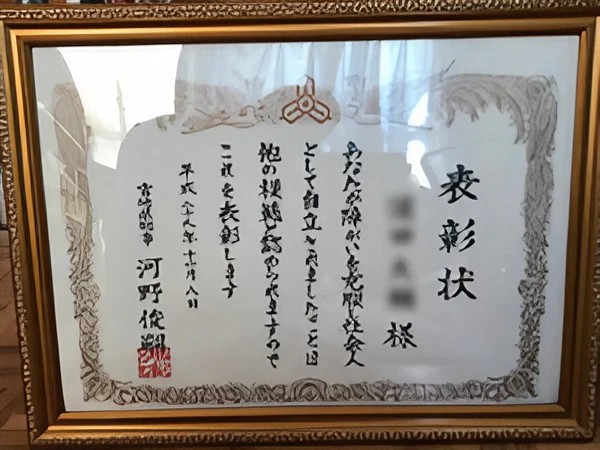 表彰状
様
あなたは障がいを克服し社会人
として自立を果しましたことは
他の模範と認められますので
これを表彰します
平成二十八年十二月八日
宮崎県知事 河野俊嗣